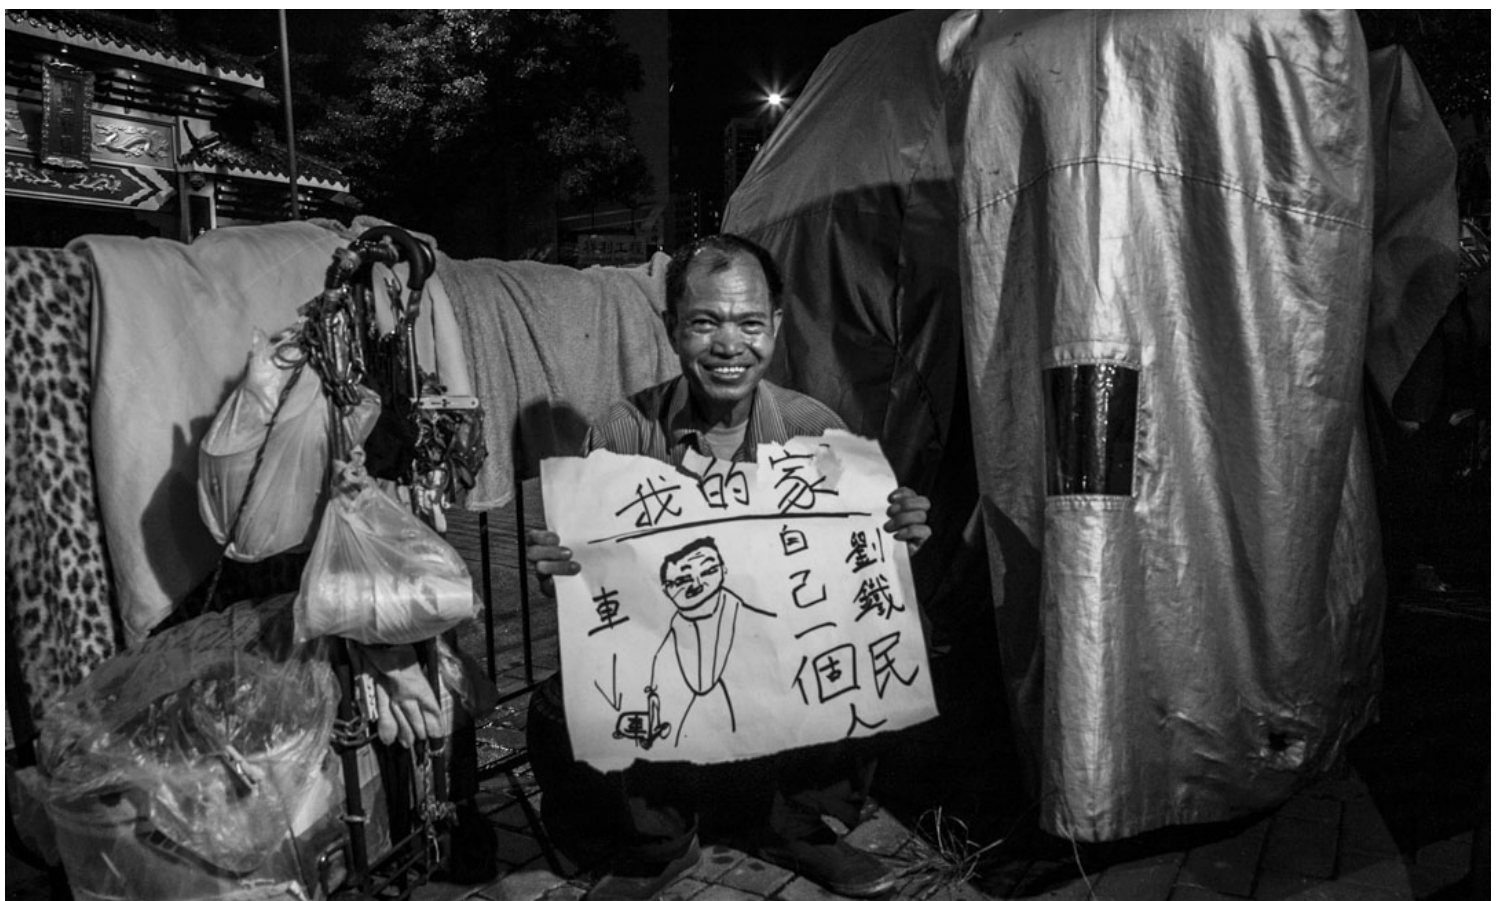 我的家
劉鐵民
自己一個人
車
車